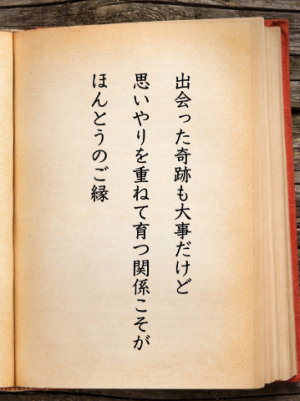 出会った奇跡も大事だけど
思いやりを重ねて育つ関係こそが
ほんとうのご縁